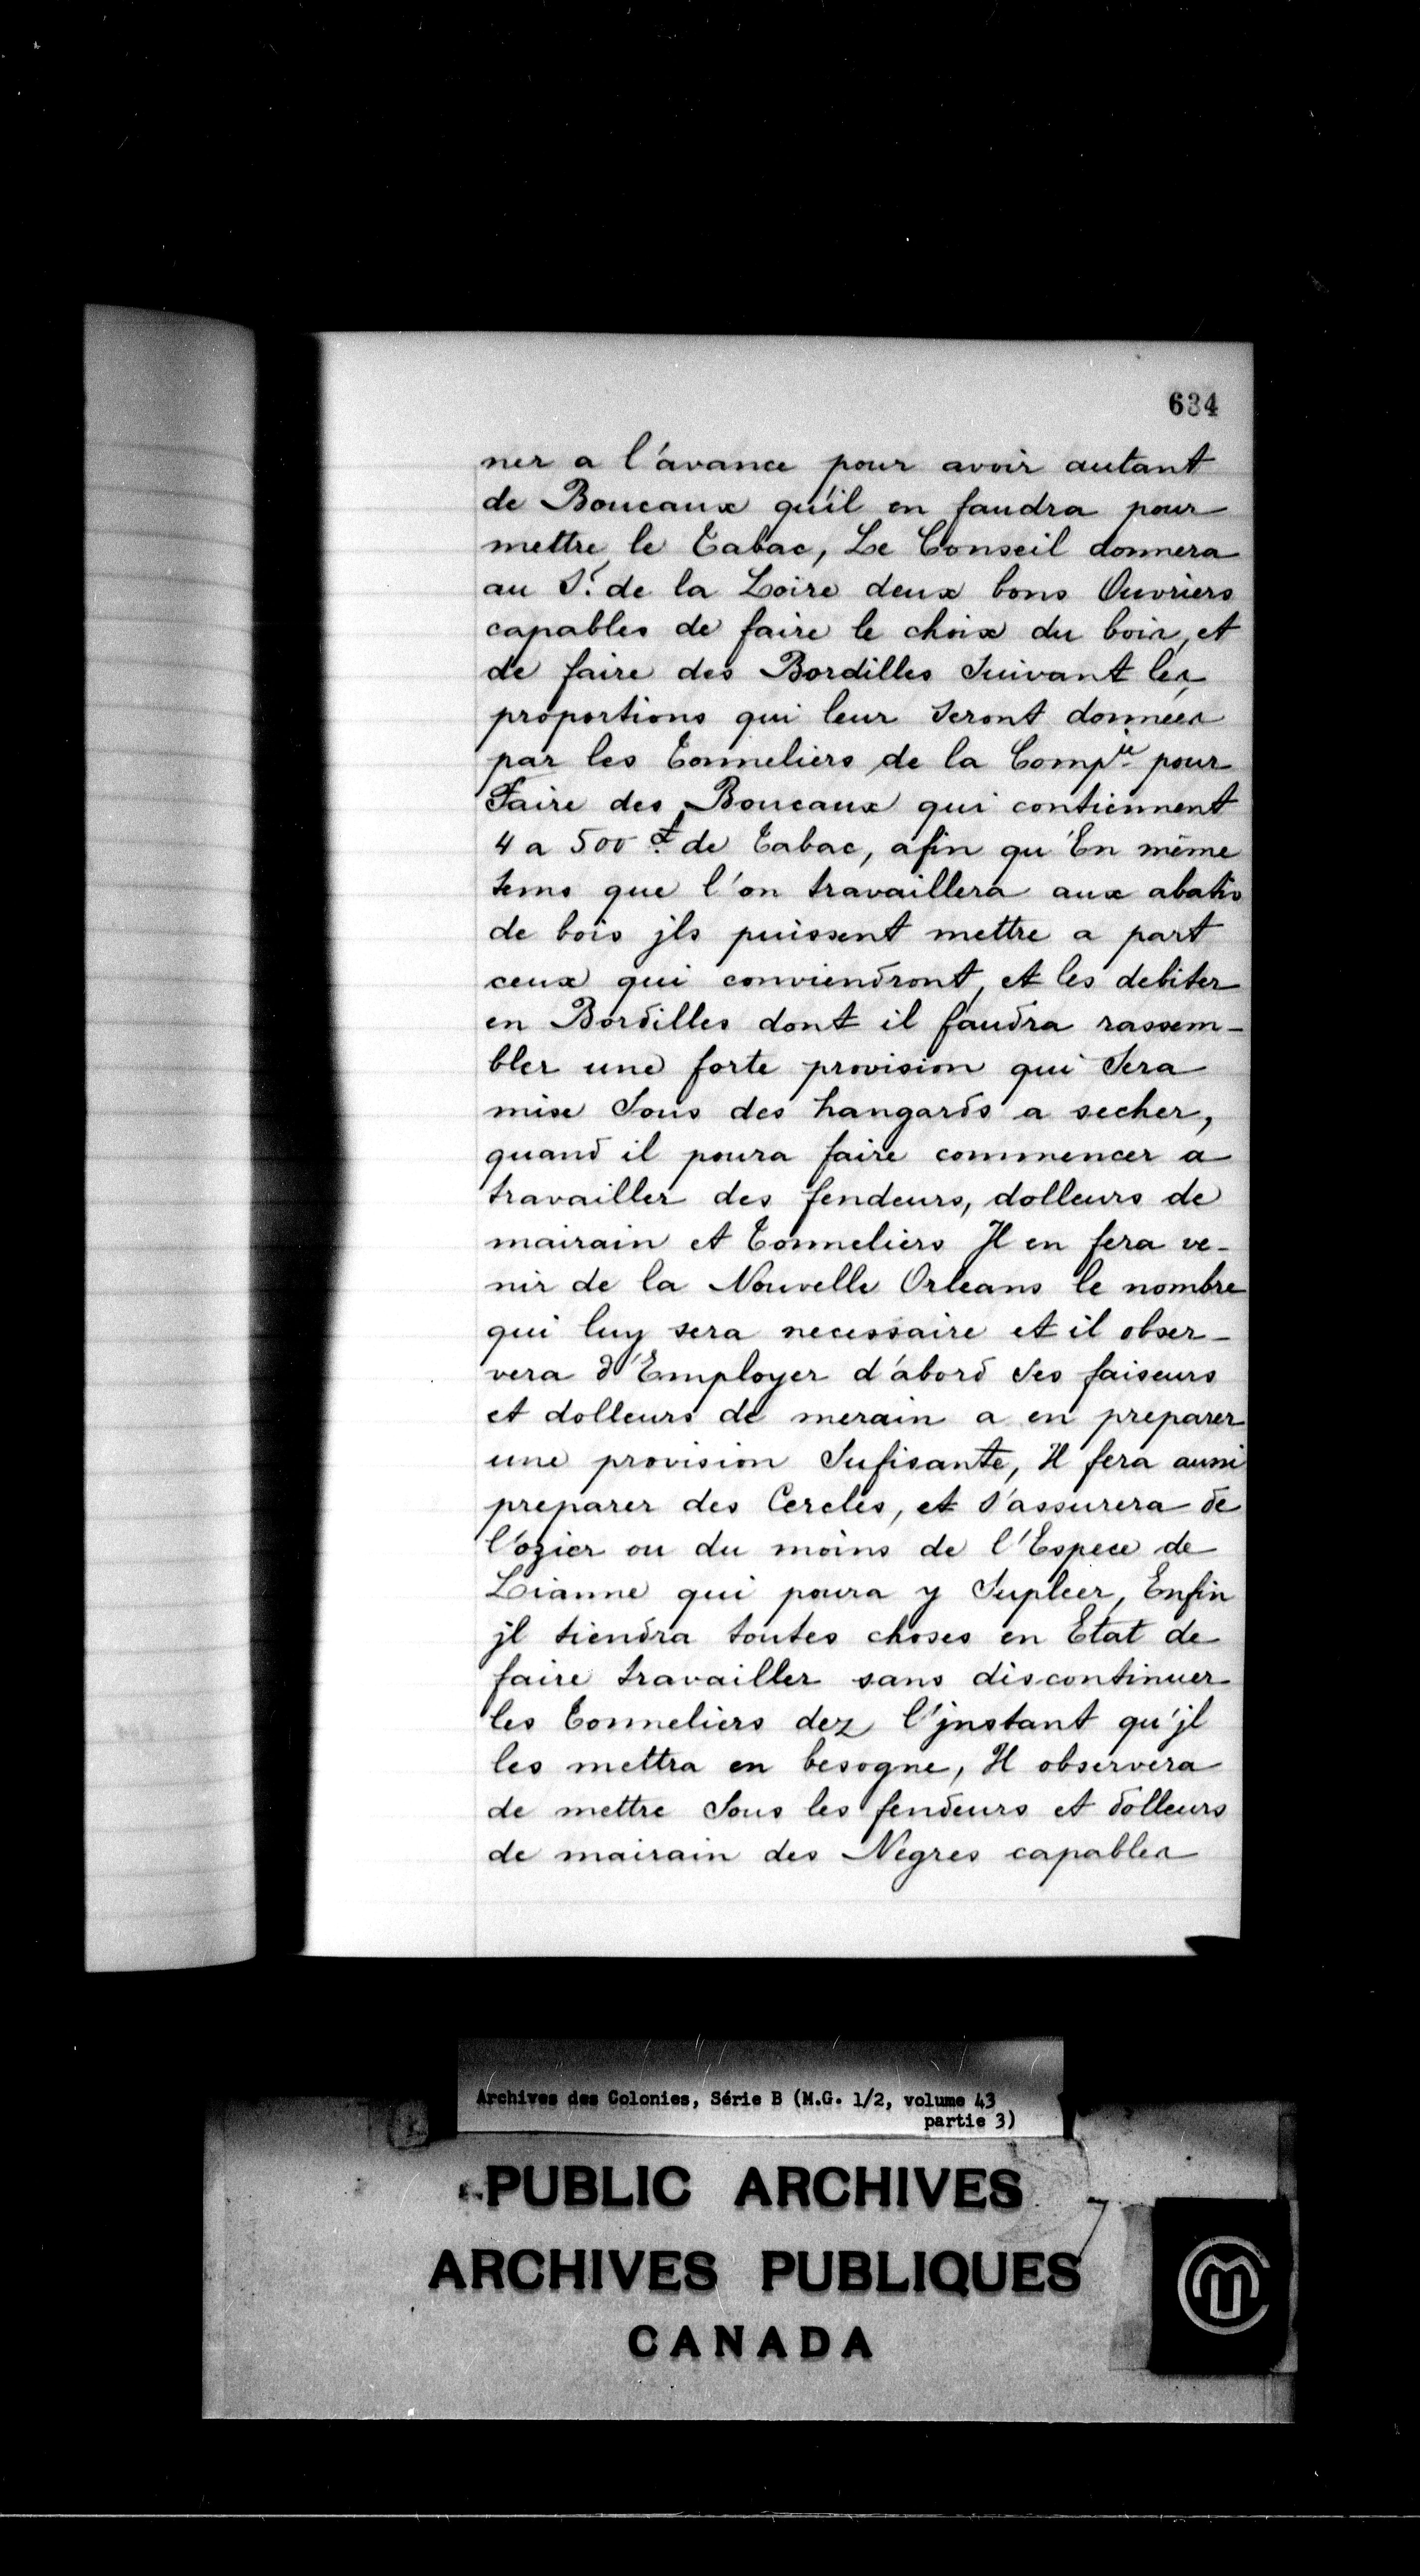 634
ner a l'avance pour avoir autant
de Boucaux qu'il en faudra pour
mettre le Tabac, Le Conseil donnera
au S.r de la Loire deux bons Ouvriers
capables de faire le choix du bois, et
de faire des Bordilles Suivant les
proportions qui leur Seront données
par les Tonneliers de la Comp.ie pour
Faire des Boucaux qui contiennent
4 a 500 # de Tabac, afin qu'En même
tems que l'on travaillera aux abatis
de bois jls puissent mettre a part
ceux qui conviendront, et les debiter
en Bordilles dont il faudra rassem-
bler une forte provision qui Sera
mise Sous des hangards a secher,
quand il poura faire commencer a
travailler des fendeurs, dolleurs de
mairain et Tonneliers Jl en fera ve-
nir de la Nouvelle Orleans le nombre
qui luy sera necessaire et il obser-
vera d'Employer d'abord Ses faiseurs
et dolleurs de merain a en preparer
une provision Sufisante, Il fera aussi
preparer des Cercles, et S'assurera de
l'ozier ou du moins de l'Espece de
Lianne qui poura y Supleer, Enfin
jl tiendra toutes choses en Etat de
faire travailler sans discontinuer
les Tonneliers dez l'jnstant qu'jl
les mettra en besogne, Il observera
de mettre Sous les fendeurs et dolleurs
de mairain des Negres capables
Archives des Colonies, Série B (M.G. 1/2, volume 43
partie 3)
PUBLIC ARCHIVES
ARCHIVES PUBLIQUES
CANADA